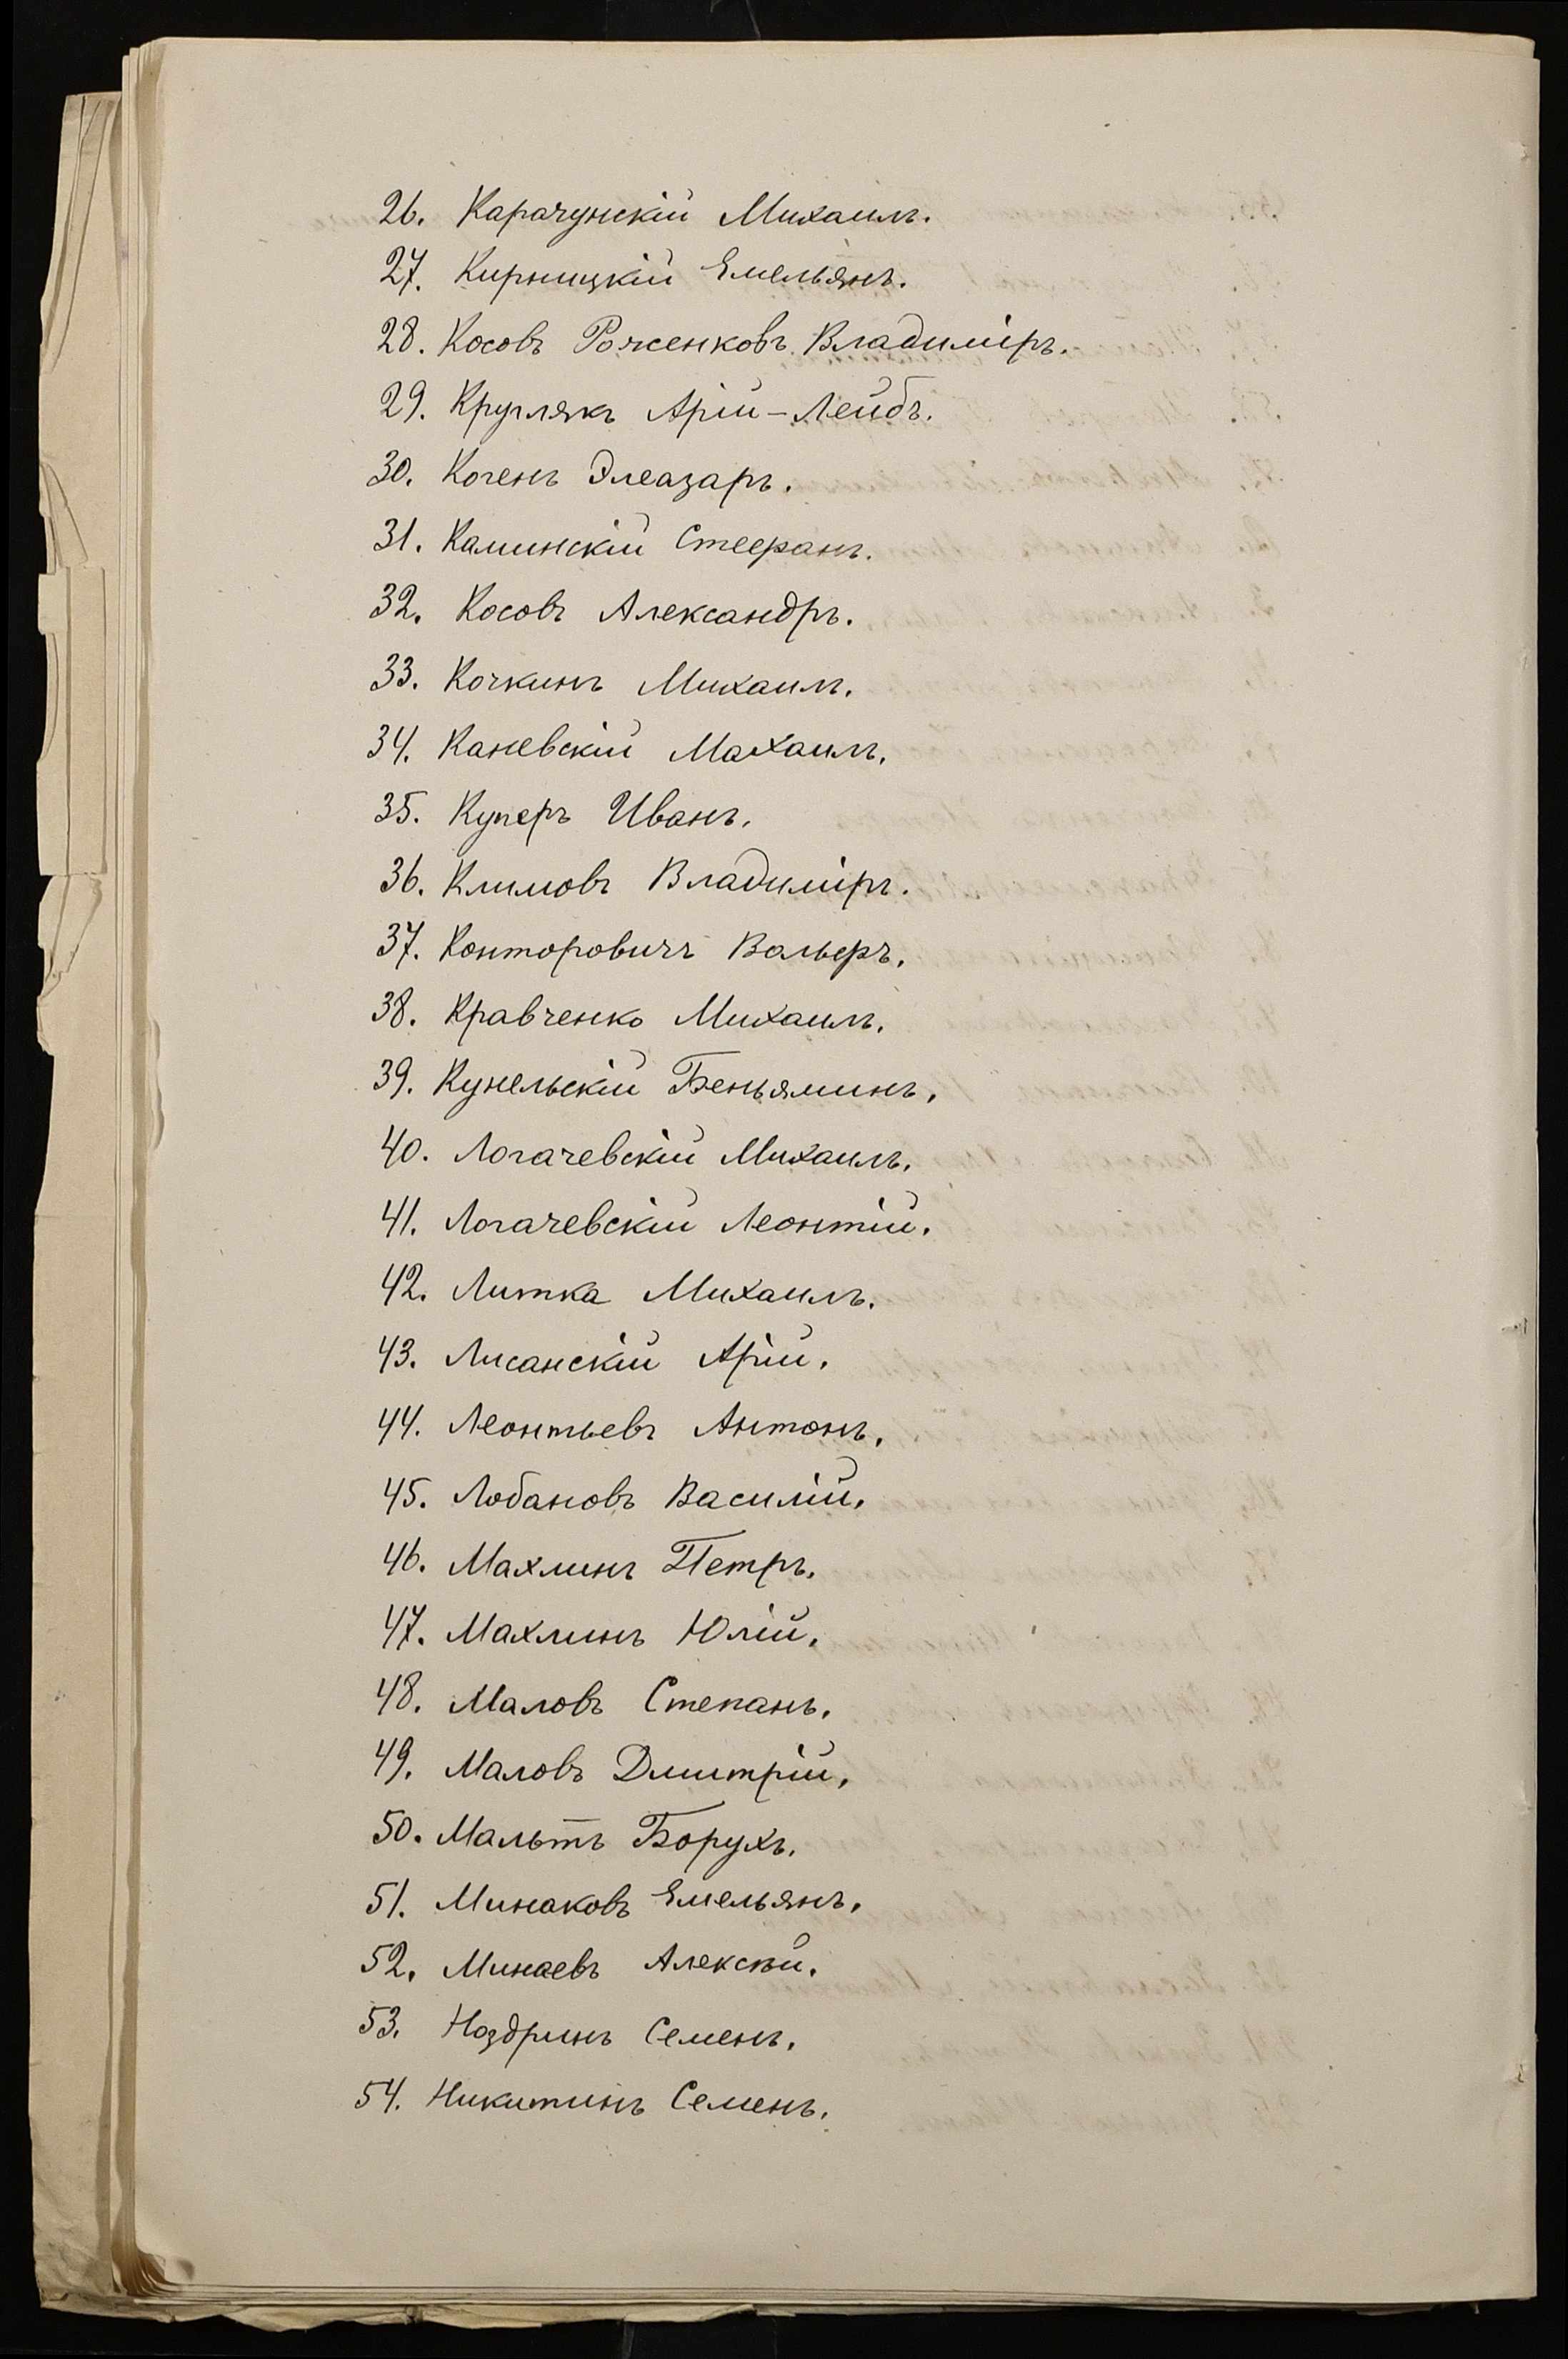 26. Карачунскій Михаилъ.
27. Кирницкій Емельянъ.
28. Косовъ Роженковъ Владиміръ.
29. Круглякъ Арій-Лейбъ.
30. Когенъ Элеазаръ.
31. Каминскій Стефанъ.
32. Косовъ Александръ.
33. Кочкинъ Михаилъ.
34. Каневскій Махаилъ.
35. Куперъ Иванъ.
36. Климовъ Владиміръ.
37. Конторовичъ Вольфъ.
38. Кравченко Михаилъ.
39. Кунельскій Беньяминъ.
40. Логачевскій Михаилъ.
41. Логачевскій Леонтій.
42. Литка Михаилъ.
43. Лисанскій Арій.
44. Леонтьевъ Антонъ.
45. Лобановъ Василій.
46. Махлинъ Петръ.
47. Махлинъ Юлій.
48. Маловъ Степанъ.
49. Маловъ Дмитрій.
50. Мальтъ Борухъ.
51. Минаковъ Емельянъ.
52. Минаевъ Алексѣй.
53. Ноздринъ Семенъ.
54. Никитинъ Семенъ.